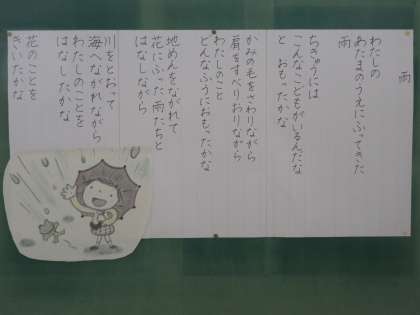 雨
わたしの
あたまのうえにふってきた
雨
ちきゅうには
こんなこどもがいるんだな
と おもったかな
かみの毛をさわりながら
肩をすべりおりながら
わたしのこと
どんなふうにおもったかな
地めんをながれて
花にふった雨たちと
はなしながら
川をとおって
海へながれながら
わたしのことを
はなしたかな
花のことを
きいたかな